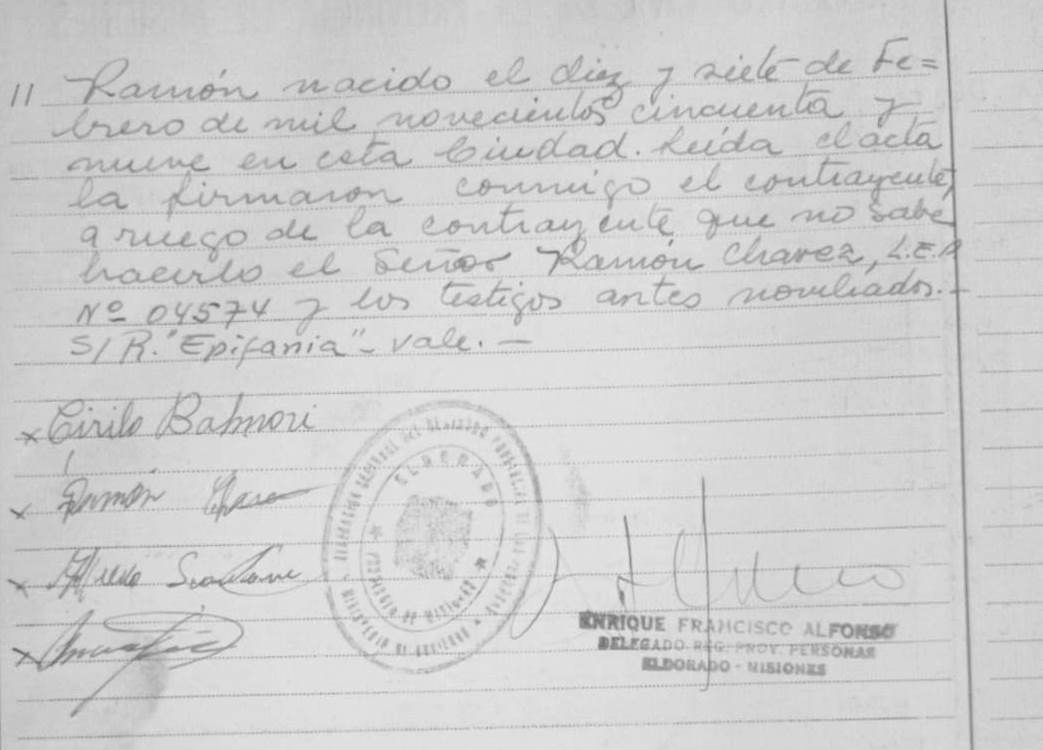 11 Ramón nacido el diez y siete de Fe=
brero de mil novecientos cincuenta y
nueve en esta Ciudad. Leída el acta
la firmaron conmigo el contrayente,
a ruego de la contrayente que no sabe
hacerlo el Señor Ramón Chavez, L.E.
Nº 04574 y los testigos antes
S/R. "Epifania" - vale. —
x Cirilo Balmori
x Ramón
x Alfredo
x
ELDORADO
PROVINCIA DE MISIONES
MINISTERIO DE GOBIERNO
ENRIQUE FRANCISCO ALFONSO
DELEGADO REG. PROV. PERSONAS
ELDORADO - MISIONES